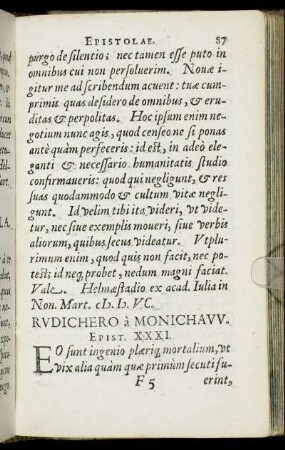 EPISTOLAE. 87
purgo de silentio; nec tamen esse puto in
omnibus cui non persoluerim. Novæ i-
gitur me ad scribendum acuent: tuæ cum-
primis quas desidero de omnibus, & eru-
ditas & perpolitas. Hoc ipsum enim ne-
gotium nunc agis, quod censeo ne si ponas
antè quàm perfeceris: id est, in adeò ele-
ganti & necessario humanitatis studio
confirmaveris: quod qui negligunt, & res
suas quodammodo & cultum vitæ negli-
gunt. Id velim tibi ita videri, ut vide-
tur, nec sive exemplis moveri, sive verbis
aliorum, quibus secus videatur. Vtplu-
rimum enim, quod quis non facit, nec po-
test; id neq; probet, nedum magni faciat.
Vale. Helmæstadio ex acad. Iulia in
Non. Mart. cIɔ. Iɔ. VC.
RVDICHERO à MONICHAVV.
EPIST. XXXI.
EO sunt ingenio plæriq; mortalium, ut
vix alia quàm quæ primùm secuti fu-
F 5 erint,